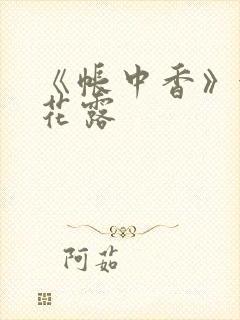 《帐中香》
花露
阿茹